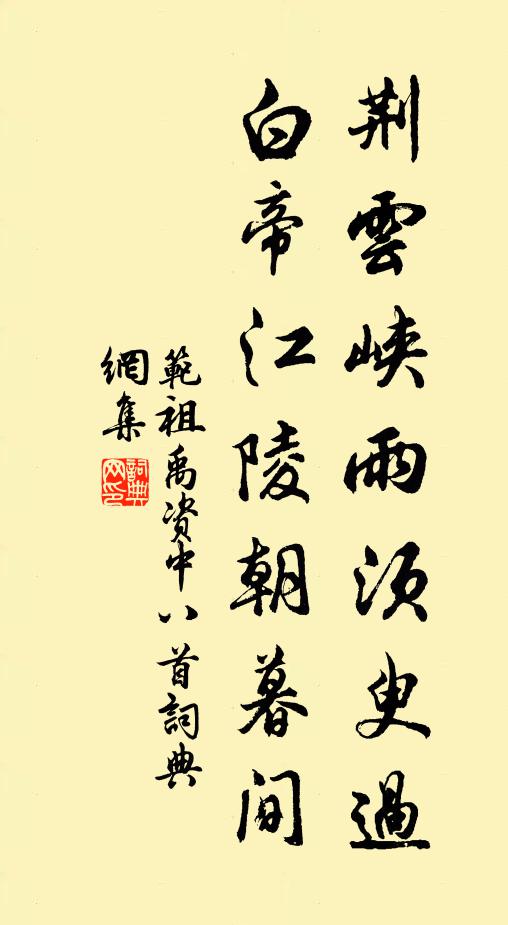 荆雲峽雨須叟過
白帝江陵朝暮間
範祖禹資中八首詞典
網集
詞典
网印